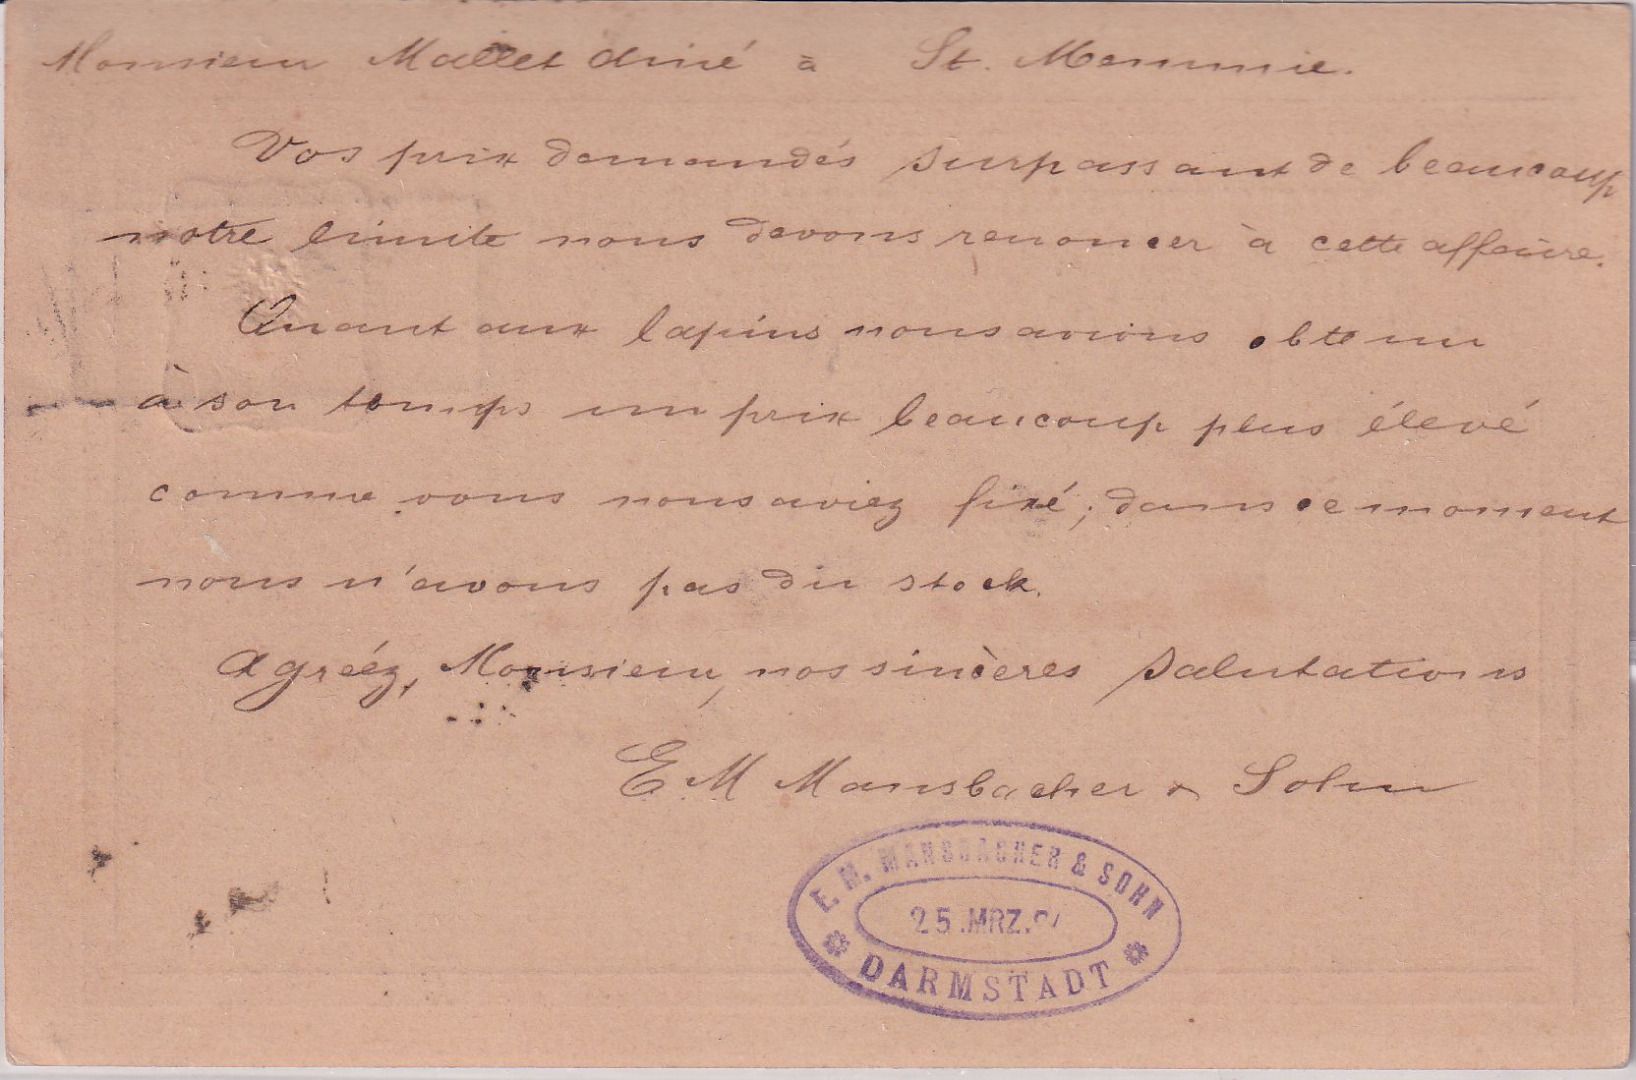 Monsieur Mallet ainé à St. Memmie.
Vos prix demandés surpassant de beaucoup
notre limite nous devons renoncer à cette affaire.
Quant aux lapins nous avions obtenu
à son temps un prix beaucoup plus élevé
comme vous nous aviez fixé; dans ce moment
nous n'avons pas du stock.
Agréez, Monsieur, nos sincères salutations
E M Mansbacher & Sohn
E. M. MANSBACHER & SOHN
25.MRZ.
DARMSTADT